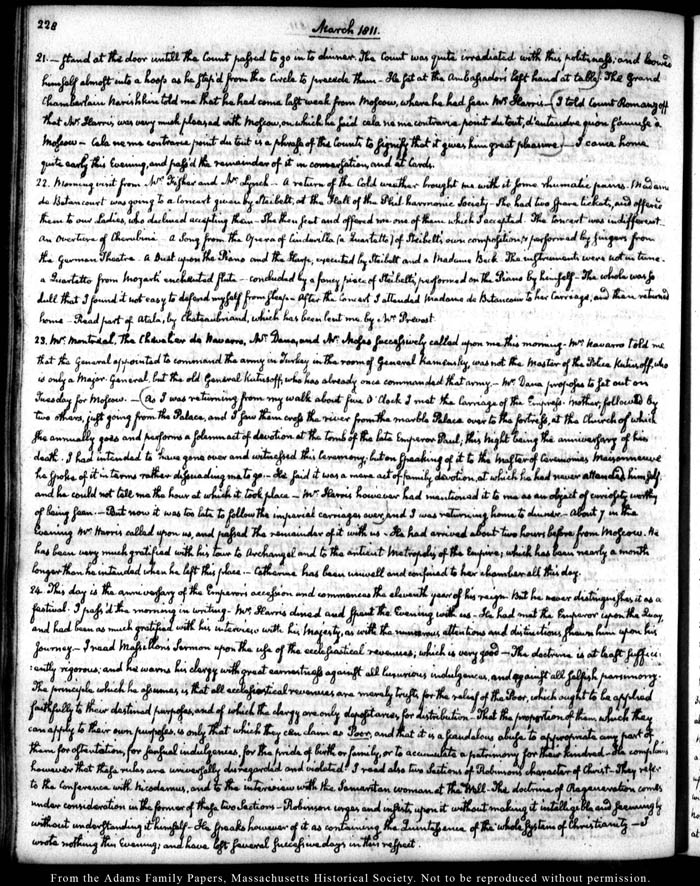 228
March 1811.
21.— stand at the door untill the Count passed to go in to dinner. The Count was quite irradiated with this politeness, and bowed
himself almost into a hoop as he step'd from the Circle to precede them— He sat at the Ambassador's left hand at table. The Grand
Chamberlain Narishkin told me that he had come last week from Moscow, where he had seen Mr Harris— I told Count Romanzoff
that Mr Harris was very much pleased with Moscow, on which he said cela ne me contrarie point du tout, d'entendre qu'on s'amuse à
Moscow— Cela ne me contrarie point du tout is a phrase of the Counts to signify that it gives him great pleasure.— I came home
quite early this Evening, and pass'd the remainder of it in conversation, and at Cards.
22. Morning visit from Mr Fisher and Mr Lynch— A return of the Cold weather brought me with it some rhumatic pains. Madame
de Betancourt was going to a Concert given by Steibelt, at the Hall of the Philharmonic Society. She had two spare tickets, and offered
them to our Ladies, who declined accepting them. She then sent and offered me one of them which I accepted. The Concert was indifferent.
An overture of Cherubini. A Song from the Opera of Cindarilla (a Quartetto) of Steibelt's own composition, & performed by singers from
the German Theatre. A Duet upon the Piano and the Harp, executed by Steibelt and a Madame Beck. The instruments were not in tune.
a Quartetto from Mozart's enchanted flute— concluded by a fancy piece of Steibelt's, performed on the Piano by himself. The whole was so
dull that I found it not easy to defend myself from sleep— After the Concert I attended Madame de Betancour to her Carriage, and then returned
home— Read part of Atala, by Chateaubriand, which has been lent me by Mr Prevost.
23. Mr Montréal, The Chevalier de Navarro, Mr Dana, and Mr Moses successively called upon me this morning— Mr Navarro told me
that the General appointed to command the army in Turkey in the room of General Kamensky, was not the Master of the Police Kutusoff, who
is only a Major General, but the old General Kutusoff, who has already once commanded that army— Mr Dana proposes to set out on
Tuesday for Moscow.— As I was returning from my walk about five O'Clock I met the Carriage of the Empress-Mother, followed by
two others, just going from the Palace, and I saw them cross the river from the marble Palace over to the fortress, at the Church of which
she annually goes and performs a solemn act of devotion at the tomb of the late Emperor Paul, this Night being the anniversary of his
death. I had intended to have gone over and witnessed this Ceremony; but on speaking of it to the Master of Ceremonies Maisonneuve
he spoke of it in terms rather dissuading me to go— He said it was a mere act of family devotion, at which he had never attended himself
and he could not tell me the hour at which it took place— Mr Harris however had mentioned it to me as an object of curiosity worthy
of being seen— But now it was too late to follow the imperial carriages over, and I was returning home to dinner— About 7 in the
Evening Mr Harris called upon us, and passed the remainder of it with us— He had arrived about two hours before from Moscow. He
has been very much gratified with his tour to Archangel and to the antient Metropolis of the Empire; which has been nearly a month
longer than he intended when he left this place— Catherine has been unwell and confined to her chamber all this day.
24. This day is the anniversary of the Emperor's accession and commences the eleventh year of his reign. But he never distinguishes it as a
festival. I pass'd the morning in writing— Mr Harris dined and spent the Evening with us— He had met the Emperor upon the Quay,
and had been as much gratified with his interview with his Majesty, as with the numerous attentions and distinctions shewn him upon his
Journey— I read Massillon's Sermon upon the use of the ecclesiastical revenues; which is very good— The doctrine is at least suffici-
-ently rigorous; and he warns his clergy with great earnestness against all luxurious indulgences, and against all selfish parsimony.
The principle which he assumes is that all ecclesiastical revenues are merely trusts for the relief of the Poor, which ought to be applied
faithfully to their destined purposes, and of which the clergy are only depositaries for distribution— That the proportion of them which they
can apply to their own purposes, is only that which they can claim as Poor, and that it is a scandalous abuse to appropriate any part of
them for ostentation, for sensual indulgences, for the pride of birth or family, or to accumulate a patrimony for their kindred— He complains
however that these rules are universally disregarded and violated. I read also two Sections of Robinson's character of Christ— They refer
to the Conference with Nicodemus, and to the interview with the Samaritan woman at the Well. The doctrine of Regeneration comes
under consideration in the former of these two Sections— Robinson urges and insists upon it without making it intelligible and seemingly
without understanding it himself— He speaks however of it as containing the Quintessence of the whole System of Christianity— I
wrote nothing this Evening; and have left several successive days in this respect.
From the Adams Family Papers, Massachusetts Historical Society. Not to be reproduced without permission.